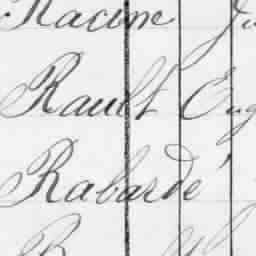 Racine
Rault Eug
Rabardé